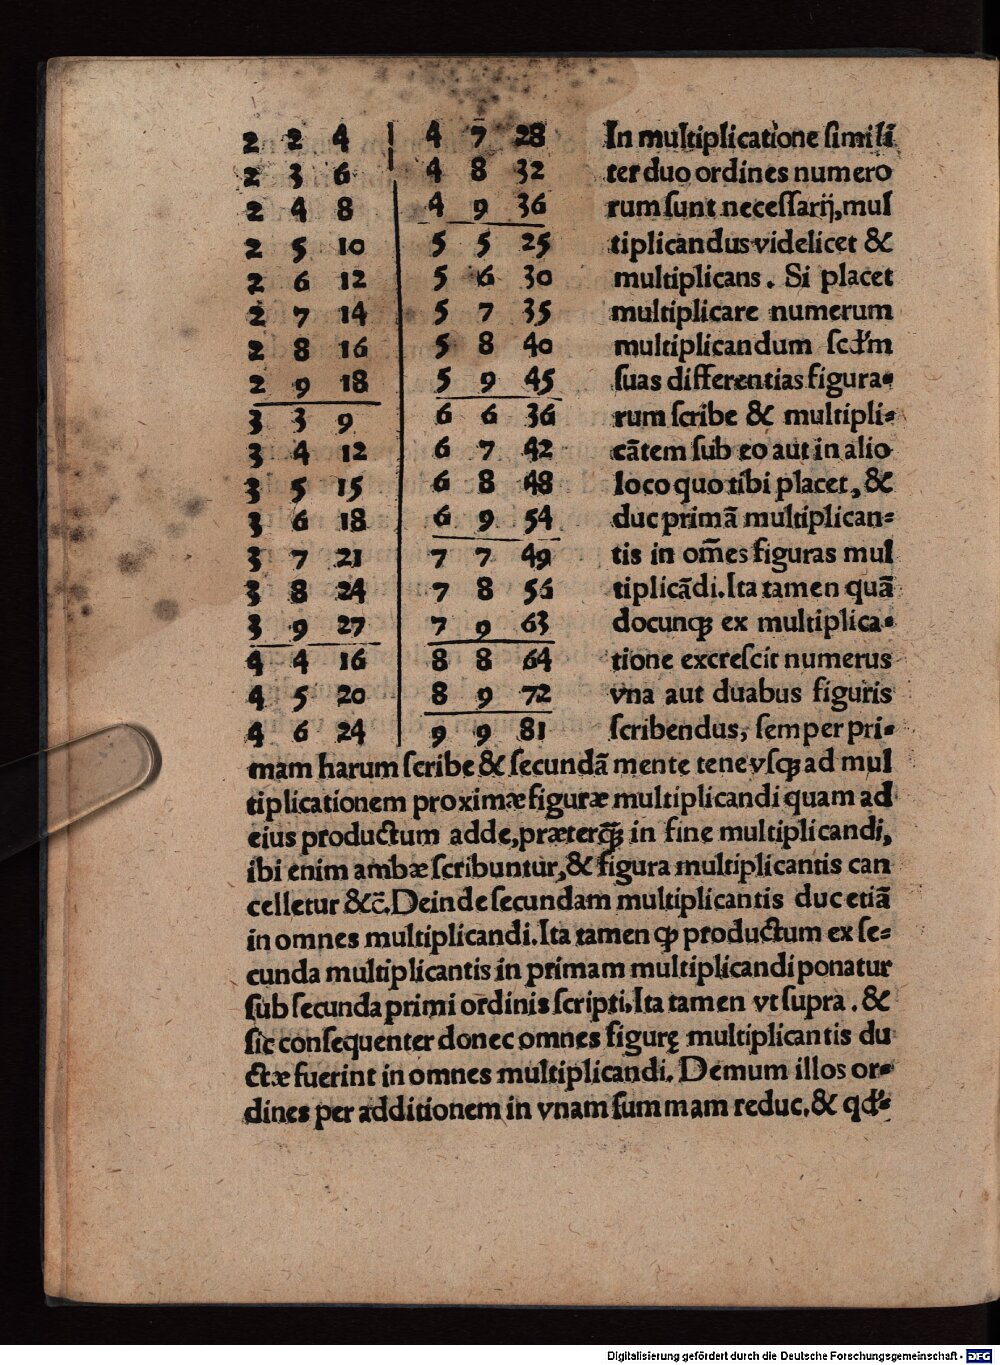 2 2 4 | 4 7 28
2 3 6 | 4 8 32
2 4 8 | 4 9 36
2 5 10 | 5 5 25
2 6 12 | 5 6 30
2 7 14 | 5 7 35
2 8 16 | 5 8 40
2 9 18 | 5 9 45
3 3 9 | 6 6 36
3 4 12 | 6 7 42
3 5 15 | 6 8 48
3 6 18 | 6 9 54
3 7 21 | 7 7 49
3 8 24 | 7 8 56
3 9 27 | 7 9 63
4 4 16 | 8 8 64
4 5 20 | 8 9 72
4 6 24 | 9 9 81
In multiplicatione ſimili
ter duo ordines numero
rum ſunt neceſſarij, mul
tiplicandus videlicet &
multiplicans. Si placet
multiplicare numerum
multiplicandum ſcd'm
ſuas differentias figura-
rum ſcribe & multipli-
cãtem ſub eo aut in alio
loco quo tibi placet, &
duc primã multiplican-
tis in om̃es figuras mul
tiplicãdi. Ita tamen quã
docunqꝫ ex multiplica-
tione excreſcit numerus
vna aut duabus figuris
ſcribendus, ſemper pri-
mam harum ſcribe & ſecundã mente tene vſqꝫ ad mul
tiplicationem proximæ figuræ multiplicandi quam ad
eius productum adde, præterq̃ꝫ in fine multiplicandi,
ibi enim ambæ ſcribuntur, & figura multiplicantis can
celletur &c̃. Deinde ſecundam multiplicantis duc etiã
in omnes multiplicandi. Ita tamen ꝙ productum ex ſe-
cunda multiplicantis in primam multiplicandi ponatur
ſub ſecunda primi ordinis ſcripti. Ita tamen vt ſupra. &
ſic conſequenter donec omnes figurę multiplicantis du
ctæ fuerint in omnes multiplicandi. Demum illos or-
dines per additionem in vnam ſummam reduc. & qd'-
Digitalisierung gefördert durch die Deutsche Forschungsgemeinschaft - DFG